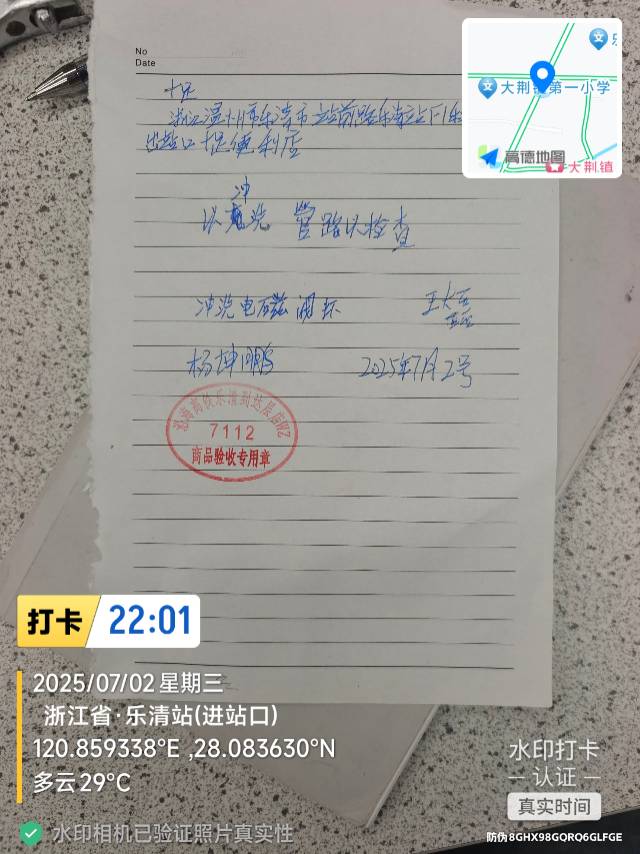 No
Date
十足
浙江温州市乐清市站前路乐清站下1乐
出站口十足便利店
冲
以洗 管路以检查
冲洗电磁阀坏
杨坤鹏 2025年7月2号
7112
商品验收专用章
大荆镇第一小学
高德地图
大荆镇
打卡 22:01
2025/07/02 星期三
浙江省·乐清站(进站口)
120.859338°E ,28.083630°N
多云 29°C
水印相机已验证照片真实性
水印打卡
认证
真实时间
防伪 8GHX98GQRQ6GLFGE